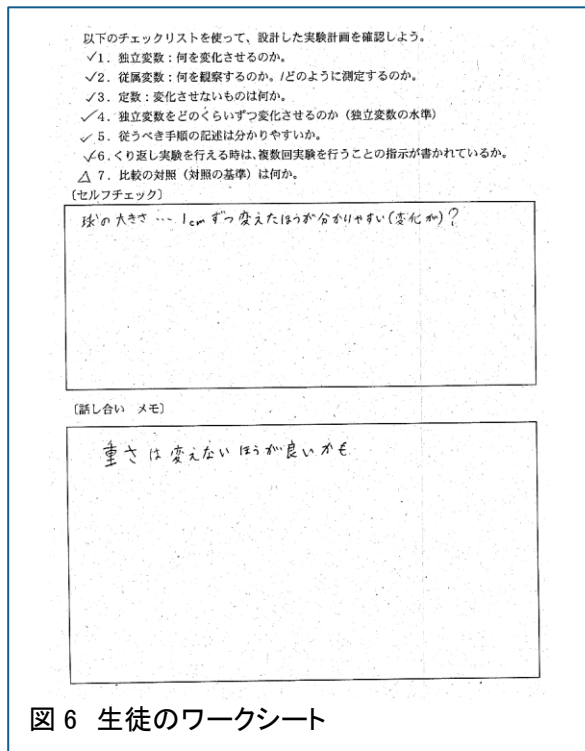 以下のチェックリストを使って、設計した実験計画を確認しよう。
✓1．独立変数：何を変化させるのか。
✓2．従属変数：何を観察するのか。/どのように測定するのか。
✓3．定数：変化させないものは何か。
✓4．独立変数をどのくらいずつ変化させるのか（独立変数の水準）
✓5．従うべき手順の記述は分かりやすいか。
✓6．くり返し実験を行える時は、複数回実験を行うことの指示が書かれているか。
△7．比較の対照（対照の基準）は何か。
〔セルフチェック〕
球の大きさ … 1cmずつ変えたほうが分かりやすい（変化が）？
〔話し合い　メモ〕
重さは変えないほうが良いかも
図 6 生徒のワークシート